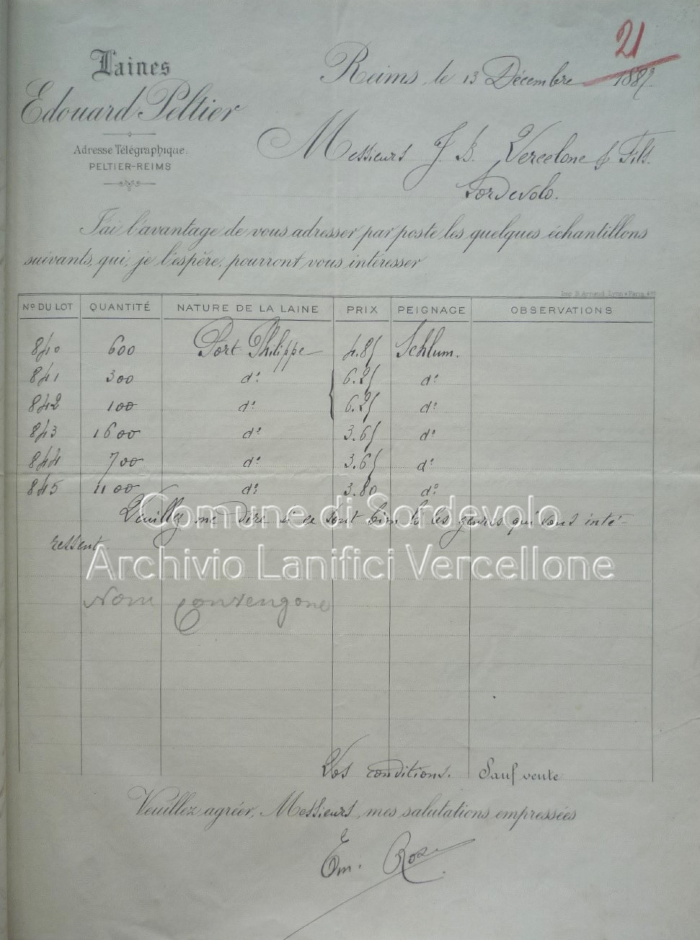 21
Laines
Edouard Peltier
Adresse Télégraphique
PELTIER-REIMS
Reims, le 13 Décembre 1887.
Messieurs J. B. Vercelone & Fils.
Sordevolo.
J'ai l'avantage de vous adresser par poste les quelques échantillons
suivants qui, je l'espère, pourront vous intéresser
No DU LOT QUANTITÉ NATURE DE LA LAINE PRIX PEIGNAGE OBSERVATIONS
840 600 Port Philippe 4.85 Schlum.
841 300 do 6.25 do
842 100 do 6.25 do
843 1600 do 3.65 do
844 700 do 3.65 do
845 1100 do 3.80 do
Veuillez me dire si ce sont bien là les genres qui vous inté-
ressent
Comune di Sordevolo
Archivio Lanifici Vercellone
Non convengono
Vos conditions. Sauf vente
Veuillez agréer, Messieurs, mes salutations empressées
Em. Rose